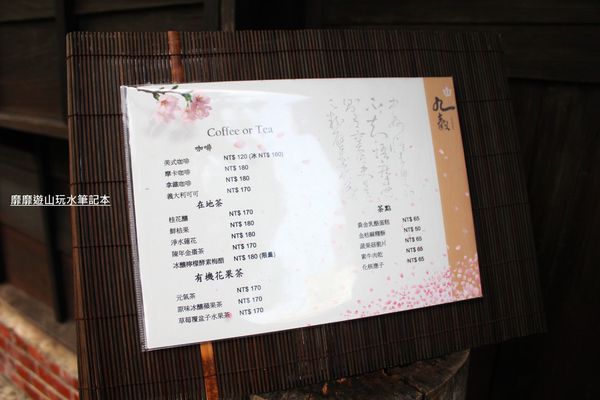 Coffee or Tea
咖啡
美式咖啡 NT$ 120 (冰 NT$ 160)
摩卡咖啡 NT$ 180
拿鐵咖啡 NT$ 180
義大利可可 NT$ 170
在地茶
桂花釀 NT$ 170
鮮桔果 NT$ 180
淨水蓮花 NT$ 170
陳年金棗茶 NT$ 170
冰釀檸檬酵素梅醋 NT$ 180 (限量)
有機花果茶
元氣茶 NT$ 170
原味冰釀蘋果茶 NT$ 170
草莓覆盆子水果茶 NT$ 170
茶點
黃金乳酪蛋糕 NT$ 65
金桔麻糬酥 NT$ 50
蔬果鬆脆片 NT$ 65
素牛肉乾 NT$ 65
化核應子 NT$ 65
九穀
靡靡遊山玩水筆記本